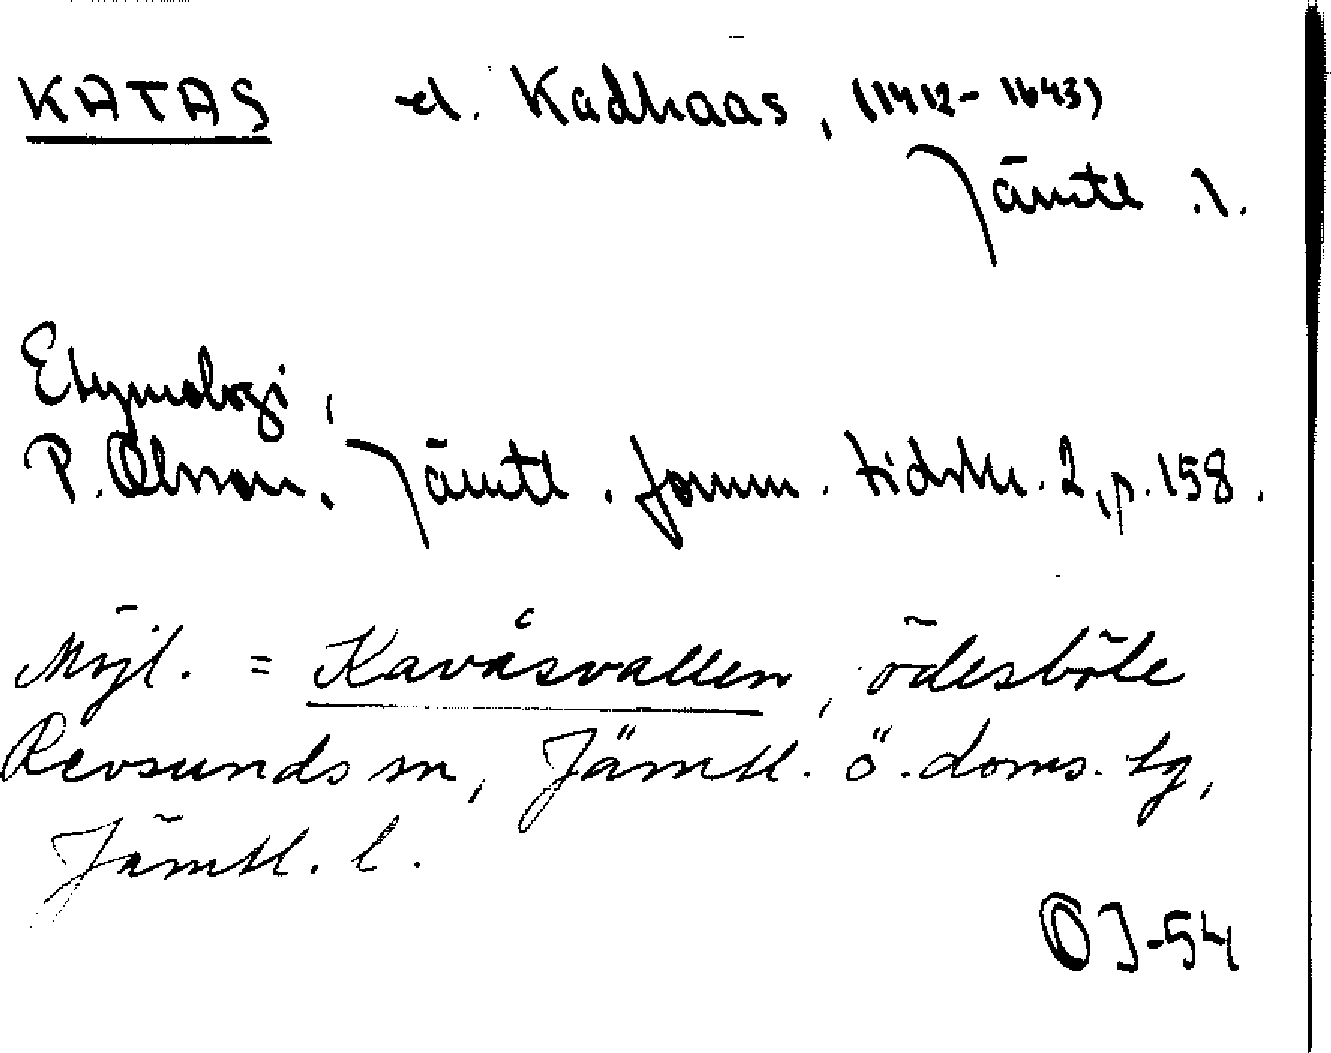 KATAS el. Kadhaas, (1412-1643)
Jämtl .l.
Etymologi,
P. Olsson. Jämtl. fornm. tidskr. 2, p. 158.
Möjl. = Kavåsvallen, ödesböle
Revsunds sn, Jämtl. ö. doms. lg,
Jämtl. l.
OJ-54